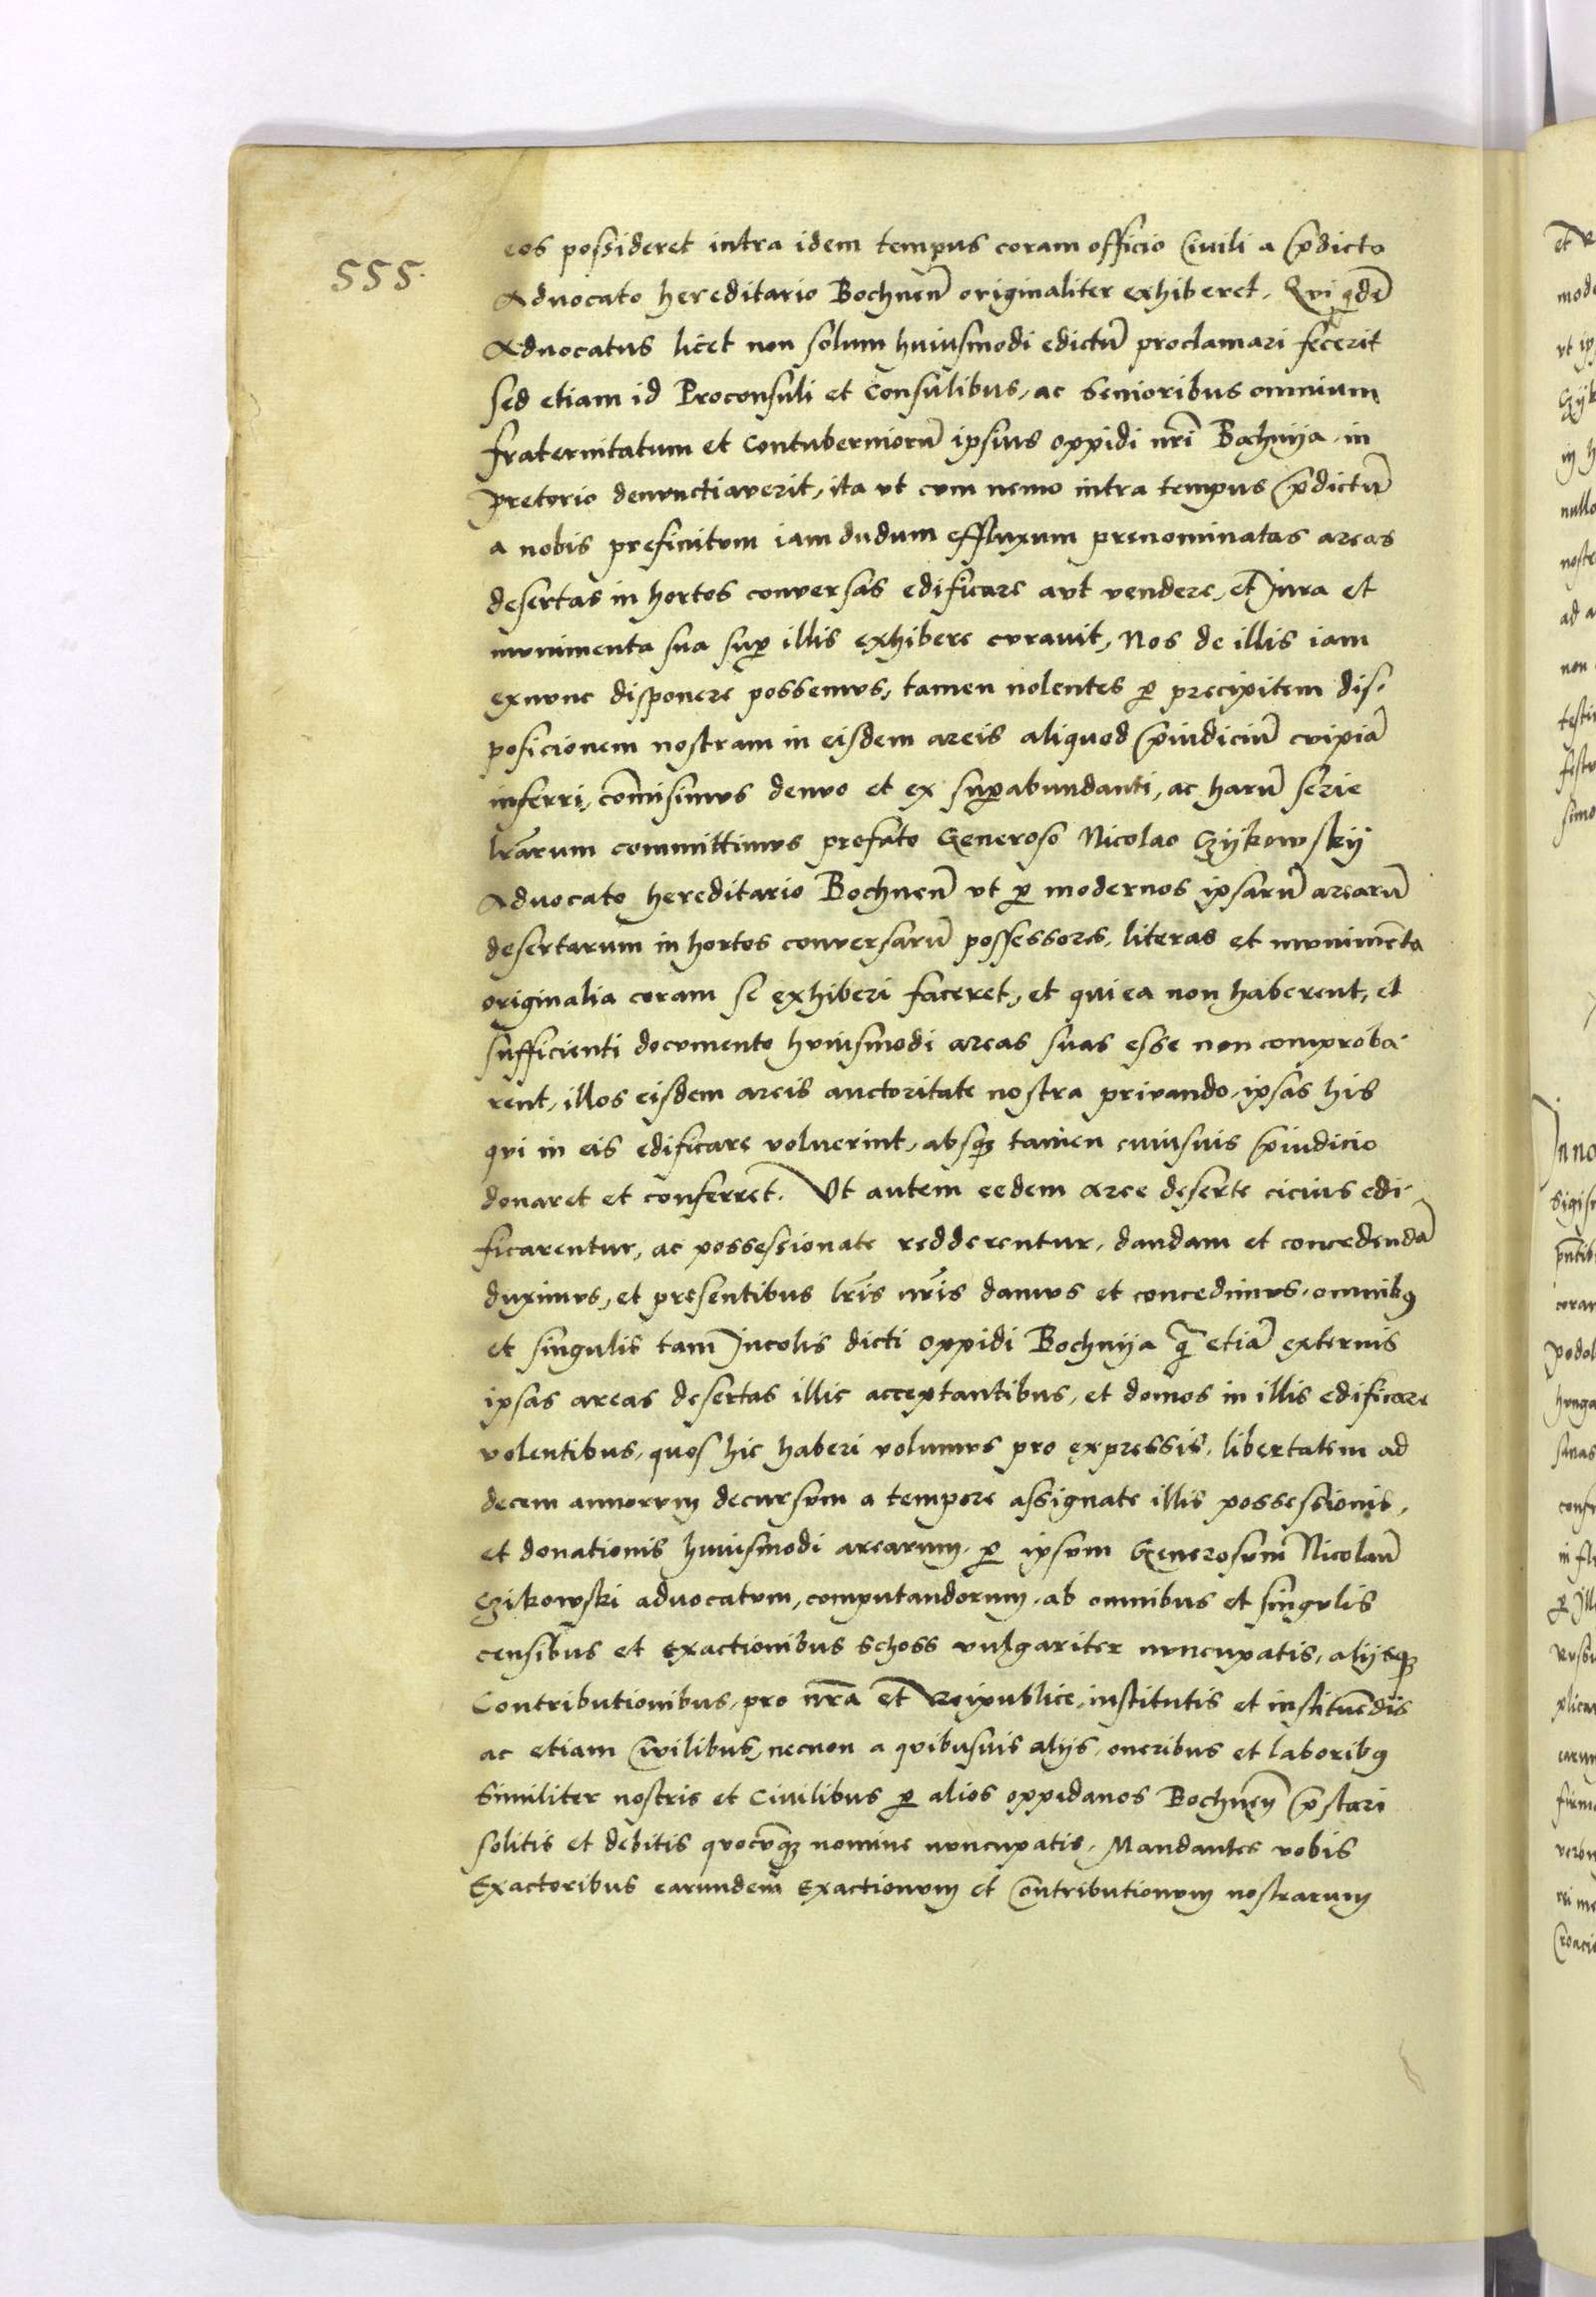 555.
eos possideret intra idem tempus coram officio Ciuili a p̄dicto
Aduocato hereditario Bochneñ originaliter exhiberet. Qui qdē
Aduocatus licet non solum huiusmodi edictū proclamari fecerit
sed etiam id Proconsuli et Consulibus, ac Senioribus omnium
fraternitatum et Contuberniorū ipsius oppidi nr̄i Bochnija in
pretorio denunctiauerit, ita vt cum nemo intra tempus p̄dictū
a nobis prefinitum iam dudum effluxum prenominatas areas
desertas in hortos conuersas edificare aut vendere, et Jura et
munimenta sua sup̱ illis exhibere curauit, Nos de illis iam
exnunc disponere possemus, tamen nolentes p̱ precipitem dis-
posicionem nostram in eisdem areis aliquod p̄iudiciū cuipiā
inferri, com̄isimus denuo et ex sup̱abundanti, ac harū serie
lr̄arum committimus prefato Generoso Nicolao Czijkowskij
Aduocato hereditario Bochneñ vt p̱ modernos ipsarū arearū
desertarum in hortos conuersarū possessores, literas et munimēta
originalia coram se exhiberi faceret, et qui ea non haberent, et
sufficienti documento huiusmodi areas suas esse non comproba-
rent, illos eisdem areis auctoritate nostra priuando, ipsas his
qui in eis edificare voluerint, absqȝ tamen cuiusuis p̄iudicio
donaret et conferret. Vt autem eedem aree deserte cicius edi-
ficarentur, ac possessionate redderentur, dandam et concedendā
duximus, et presentibus lr̄is nr̄is damus et concedimus, omnibꝰ
et singulis tam Incolis dicti oppidi Bochnija q̄ etiā externis
ipsas areas desertas illic acceptantibus, et domos in illis edificare
volentibus, quos hic haberi volumus pro expressis, libertatem ad
decem annorum decursum a tempore assignate illis possessionis,
et donationis huiusmodi arearum, p̱ ipsum Generosum Nicolaū
Czikowski aduocatum, computandorum, ab omnibus et singulis
censibus et exactionibus Schoss vulgariter nuncupatis, alijsqȝ
Contributionibus, pro nr̄a et Reipublice, institutis et instituēdis
ac etiam Ciuilibus, necnon a quibusuis alijs, oneribus et laboribꝰ
similiter nostris et Ciuilibus p̱ alios oppidanos Bochneñ p̄stari
solitis et debitis quocūqȝ nomine nuncupatis. Mandantes vobis
Exactoribus earundem Exactionum et Contributionum nostrarum